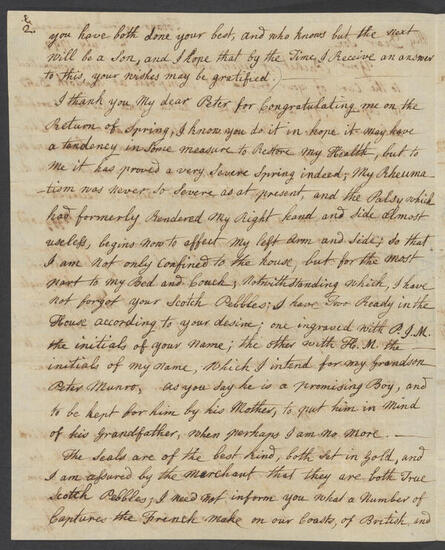 2
you have both done your best, and who knows but the next
will be a son, and I hope that by the Time I Receive an answer
to this, your wishes may be gratified.
I thank you My dear Peter for Congratulating me on the
Return of Spring, I know you do it in hope it may have
a tendency in Some measure to Restore my Health, but to
me it has proved a very Severe Spring indeed; My Rheuma-
-tism was never so severe as at present, and the Palsy which
had formerly Rendered my Right hand and side almost
useless, begins now to affect my left Arm and Side; so that
I am not only Confined to the house, but for the most
part to my Bed and Couch; Notwithstanding which, I have
not forgot your Scotch Pebbles; I have Two Ready in the
House according to your desire; one ingraved with P.I.M.
the initials of your Name; the other with H. M. the
initials of my name, which I intend for my Grandson
Peter Munro, as you Say he is a promising Boy, and
to be kept for him by his Mother, to put him in Mind
of his Grandfather, when perhaps I am no More. —
The Seals are of the best kind, both Set in Gold, and
I am assured by the Merchant that they are both True
Scotch Pebbles; I need not inform you what a Number of
Captures the French make on our Coasts, of British and